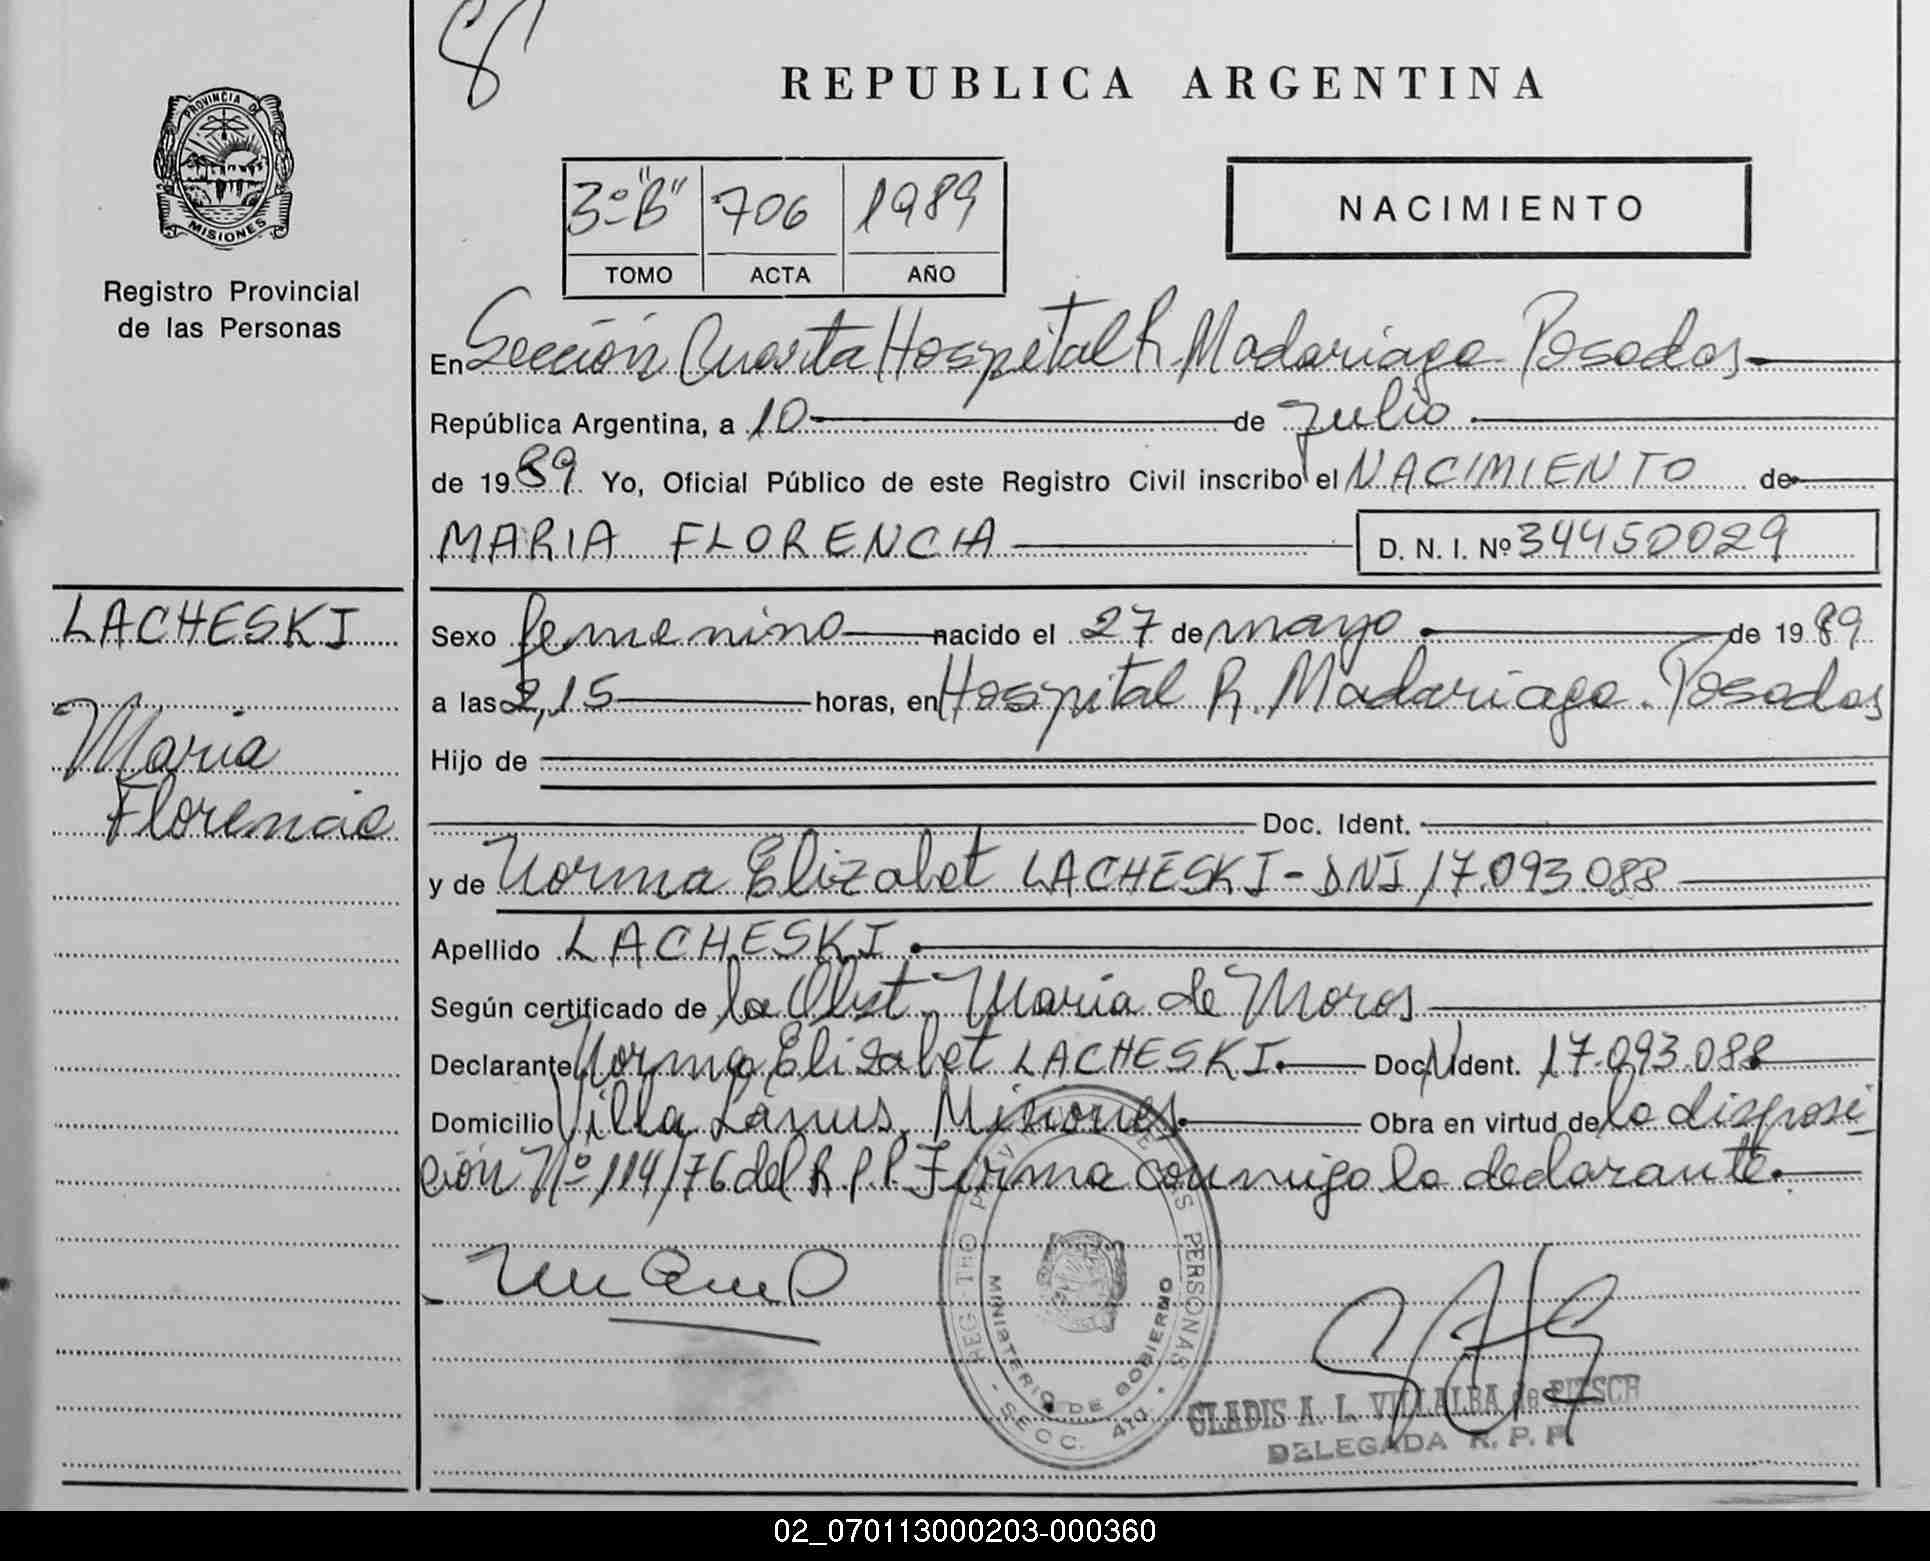 REPUBLICA ARGENTINA
PROVINCIA DE
MISIONES
Registro Provincial
de las Personas
3º "B" 706 1989
TOMO ACTA AÑO
NACIMIENTO
En Sección Cuarta Hospital R. Madariaga Posadas
República Argentina, a 10 de julio
de 1989 Yo, Oficial Público de este Registro Civil inscribo el NACIMIENTO de
MARIA FLORENCIA D. N. I. Nº 34450029
LACHESKI
Maria
Florencia
Sexo femenino nacido el 27 de mayo de 1989
a las 2,15 horas, en Hospital R. Madariaga. Posadas
Hijo de
Doc. Ident.
y de Norma Elizabet LACHESKI - DNI 17.093.088
Apellido LACHESKI
Según certificado de la Obst. Maria de Moros
Declarante Norma Elizabet LACHESKI Doc. Ident. 17.093.088
Domicilio Villa Lanus, Misiones Obra en virtud de la disposi
ción Nº 114/76 del R P P. Firma conmigo la declarante.
PERSONAS
MINISTERIO DE GOBIERNO
SECC. 4TA.
GLADIS A. L. VILLALBA de
DELEGADA R. P. P.
02_070113000203-000360